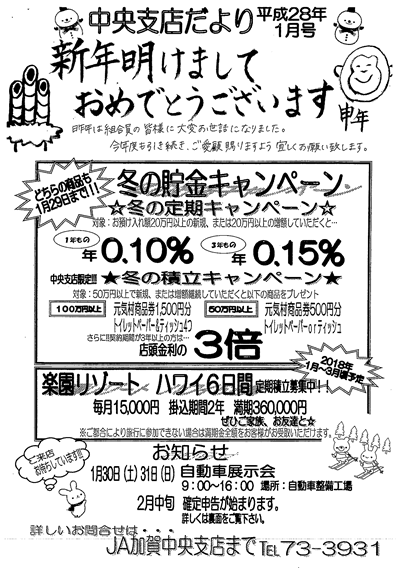 中央支店だより
平成28年
1月号
新年明けまして
おめでとうございます
申年
昨年は組合員の皆様に大変お世話になりました。
今年度も引き続き、ご愛顧賜りますよう宜しくお願い致します。
どちらの商品も
1月29日まで!!
冬の貯金キャンペーン
☆冬の定期キャンペーン☆
対象:お預け入れ額20万円以上の新規、または20万円以上の増額していただくと…
1年もの
年0.10%
3年もの
年0.15%
中央支店限定!!!
★冬の積立キャンペーン★
対象:50万円以上で新規、または増額継続していただくと以下の商品をプレゼント
100万円以上
元気村商品券1,500円分
トイレットペーパー&ティッシュ4つ
50万円以上
元気村商品券500円分
トイレットペーパーorティッシュ
さらに!!契約期間が3年以上の方は…
店頭金利の3倍
2018年
1月~3月頃予定
楽園リゾート ハワイ6日間 定期積立募集中!!
毎月15,000円 掛込期間2年 満期360,000円
ぜひご家族、お友達と☆
※ご都合により旅行に参加できない場合は満期金全額をお客様がお受取いただけます。
お知らせ
ご来店
お待ちしています!!!
1月30日(土)31日(日)自動車展示会
9:00~16:00 場所:自動車整備工場
2月中旬 確定申告が始まります。
詳しくは裏面をご覧下さい。
詳しいお問合せは・・・
JA加賀中央支店まで TEL73-3931